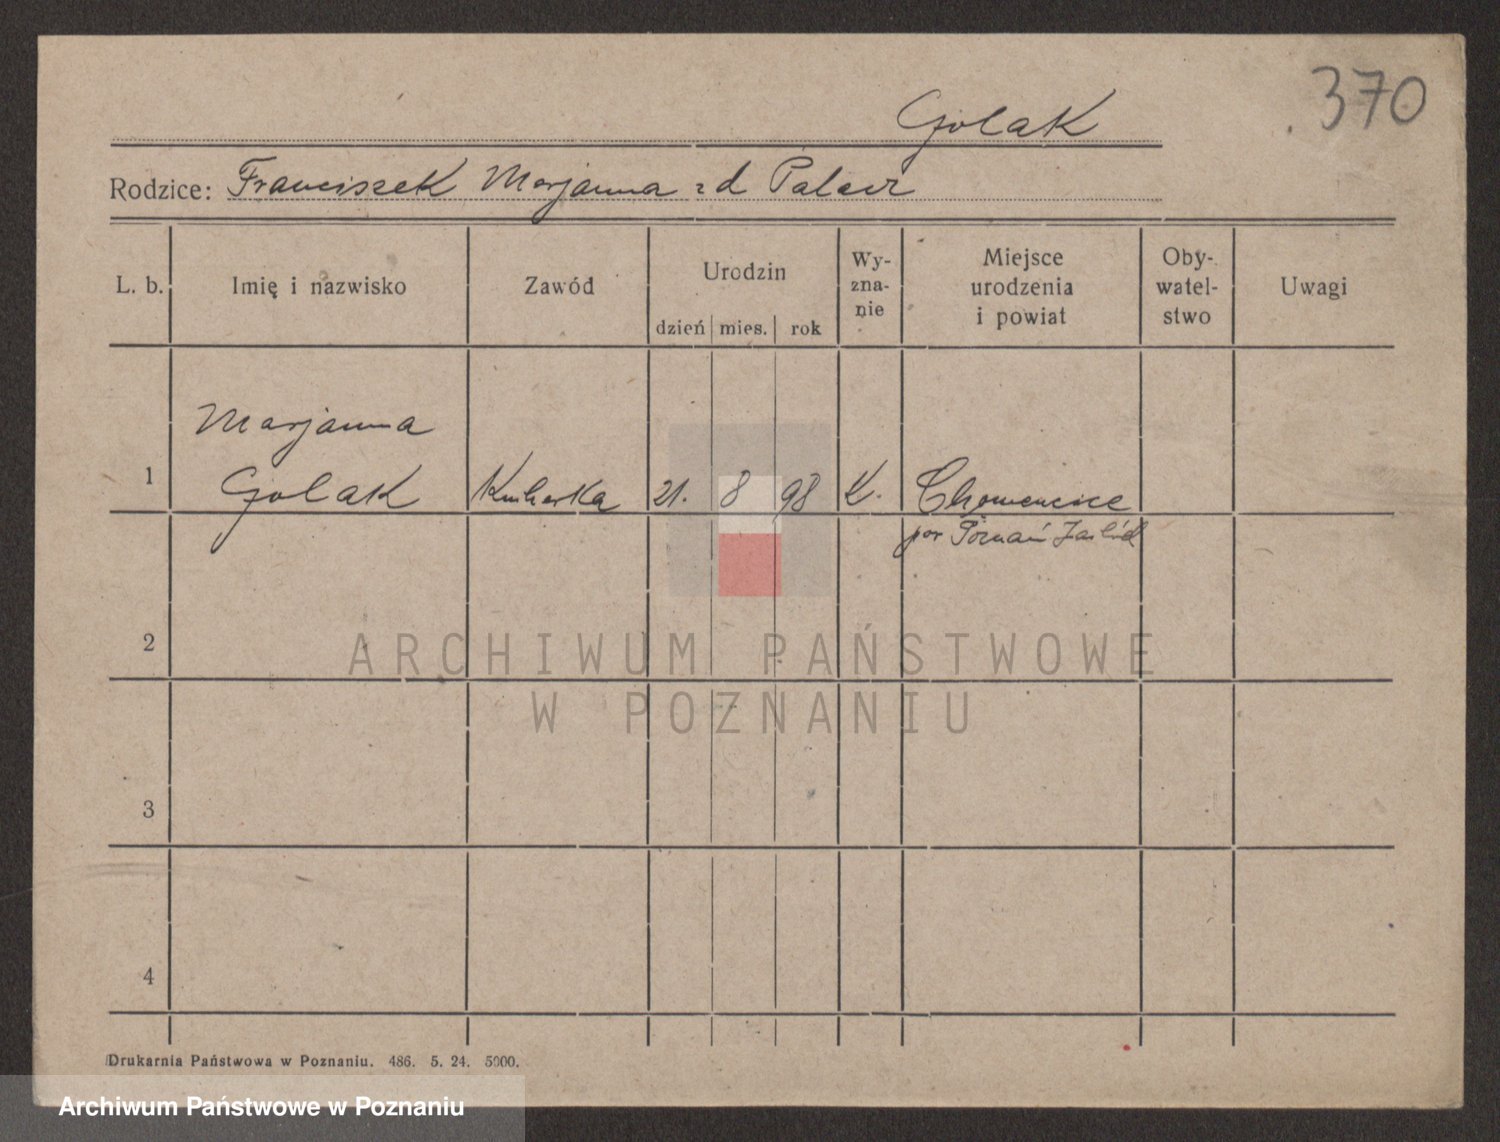 370
Golak
Rodzice: Franciszek Marjanna z d Palacz
L. b. Imię i nazwisko Zawód Urodzin dzień mies. rok Wy-znanie Miejsce urodzenia i powiat Oby-watel-stwo Uwagi
Marjanna
1 Golak Kucharka 21. 8 98 K. Chomencice
pow Poznań Zachód
2
3
4
ARCHIWUM PAŃSTWOWE
W POZNANIU
Drukarnia Państwowa w Poznaniu. 486. 5. 24. 5000.
Archiwum Państwowe w Poznaniu